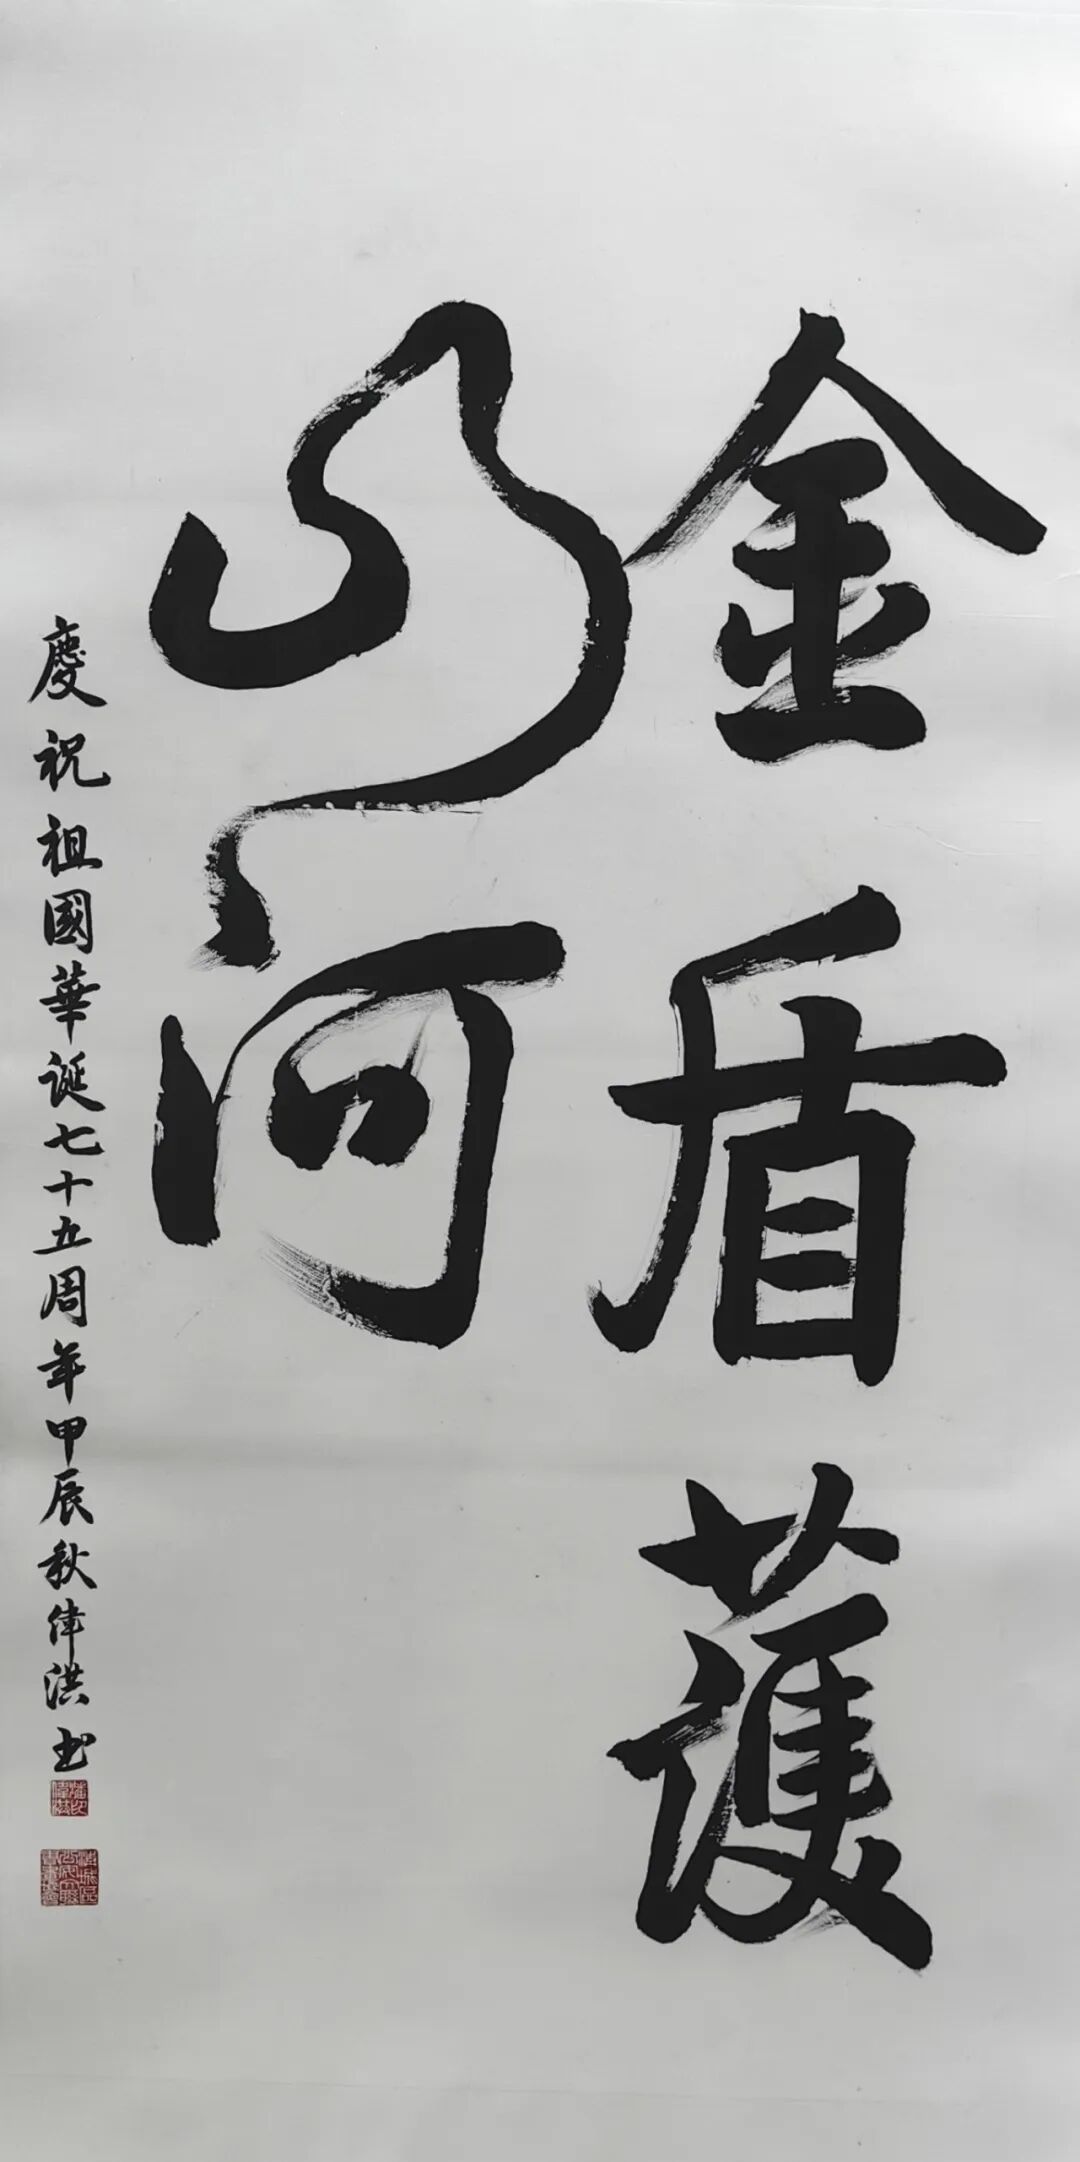 金盾護
山河
慶祝祖國華誕七十五周年甲辰秋偉洪书